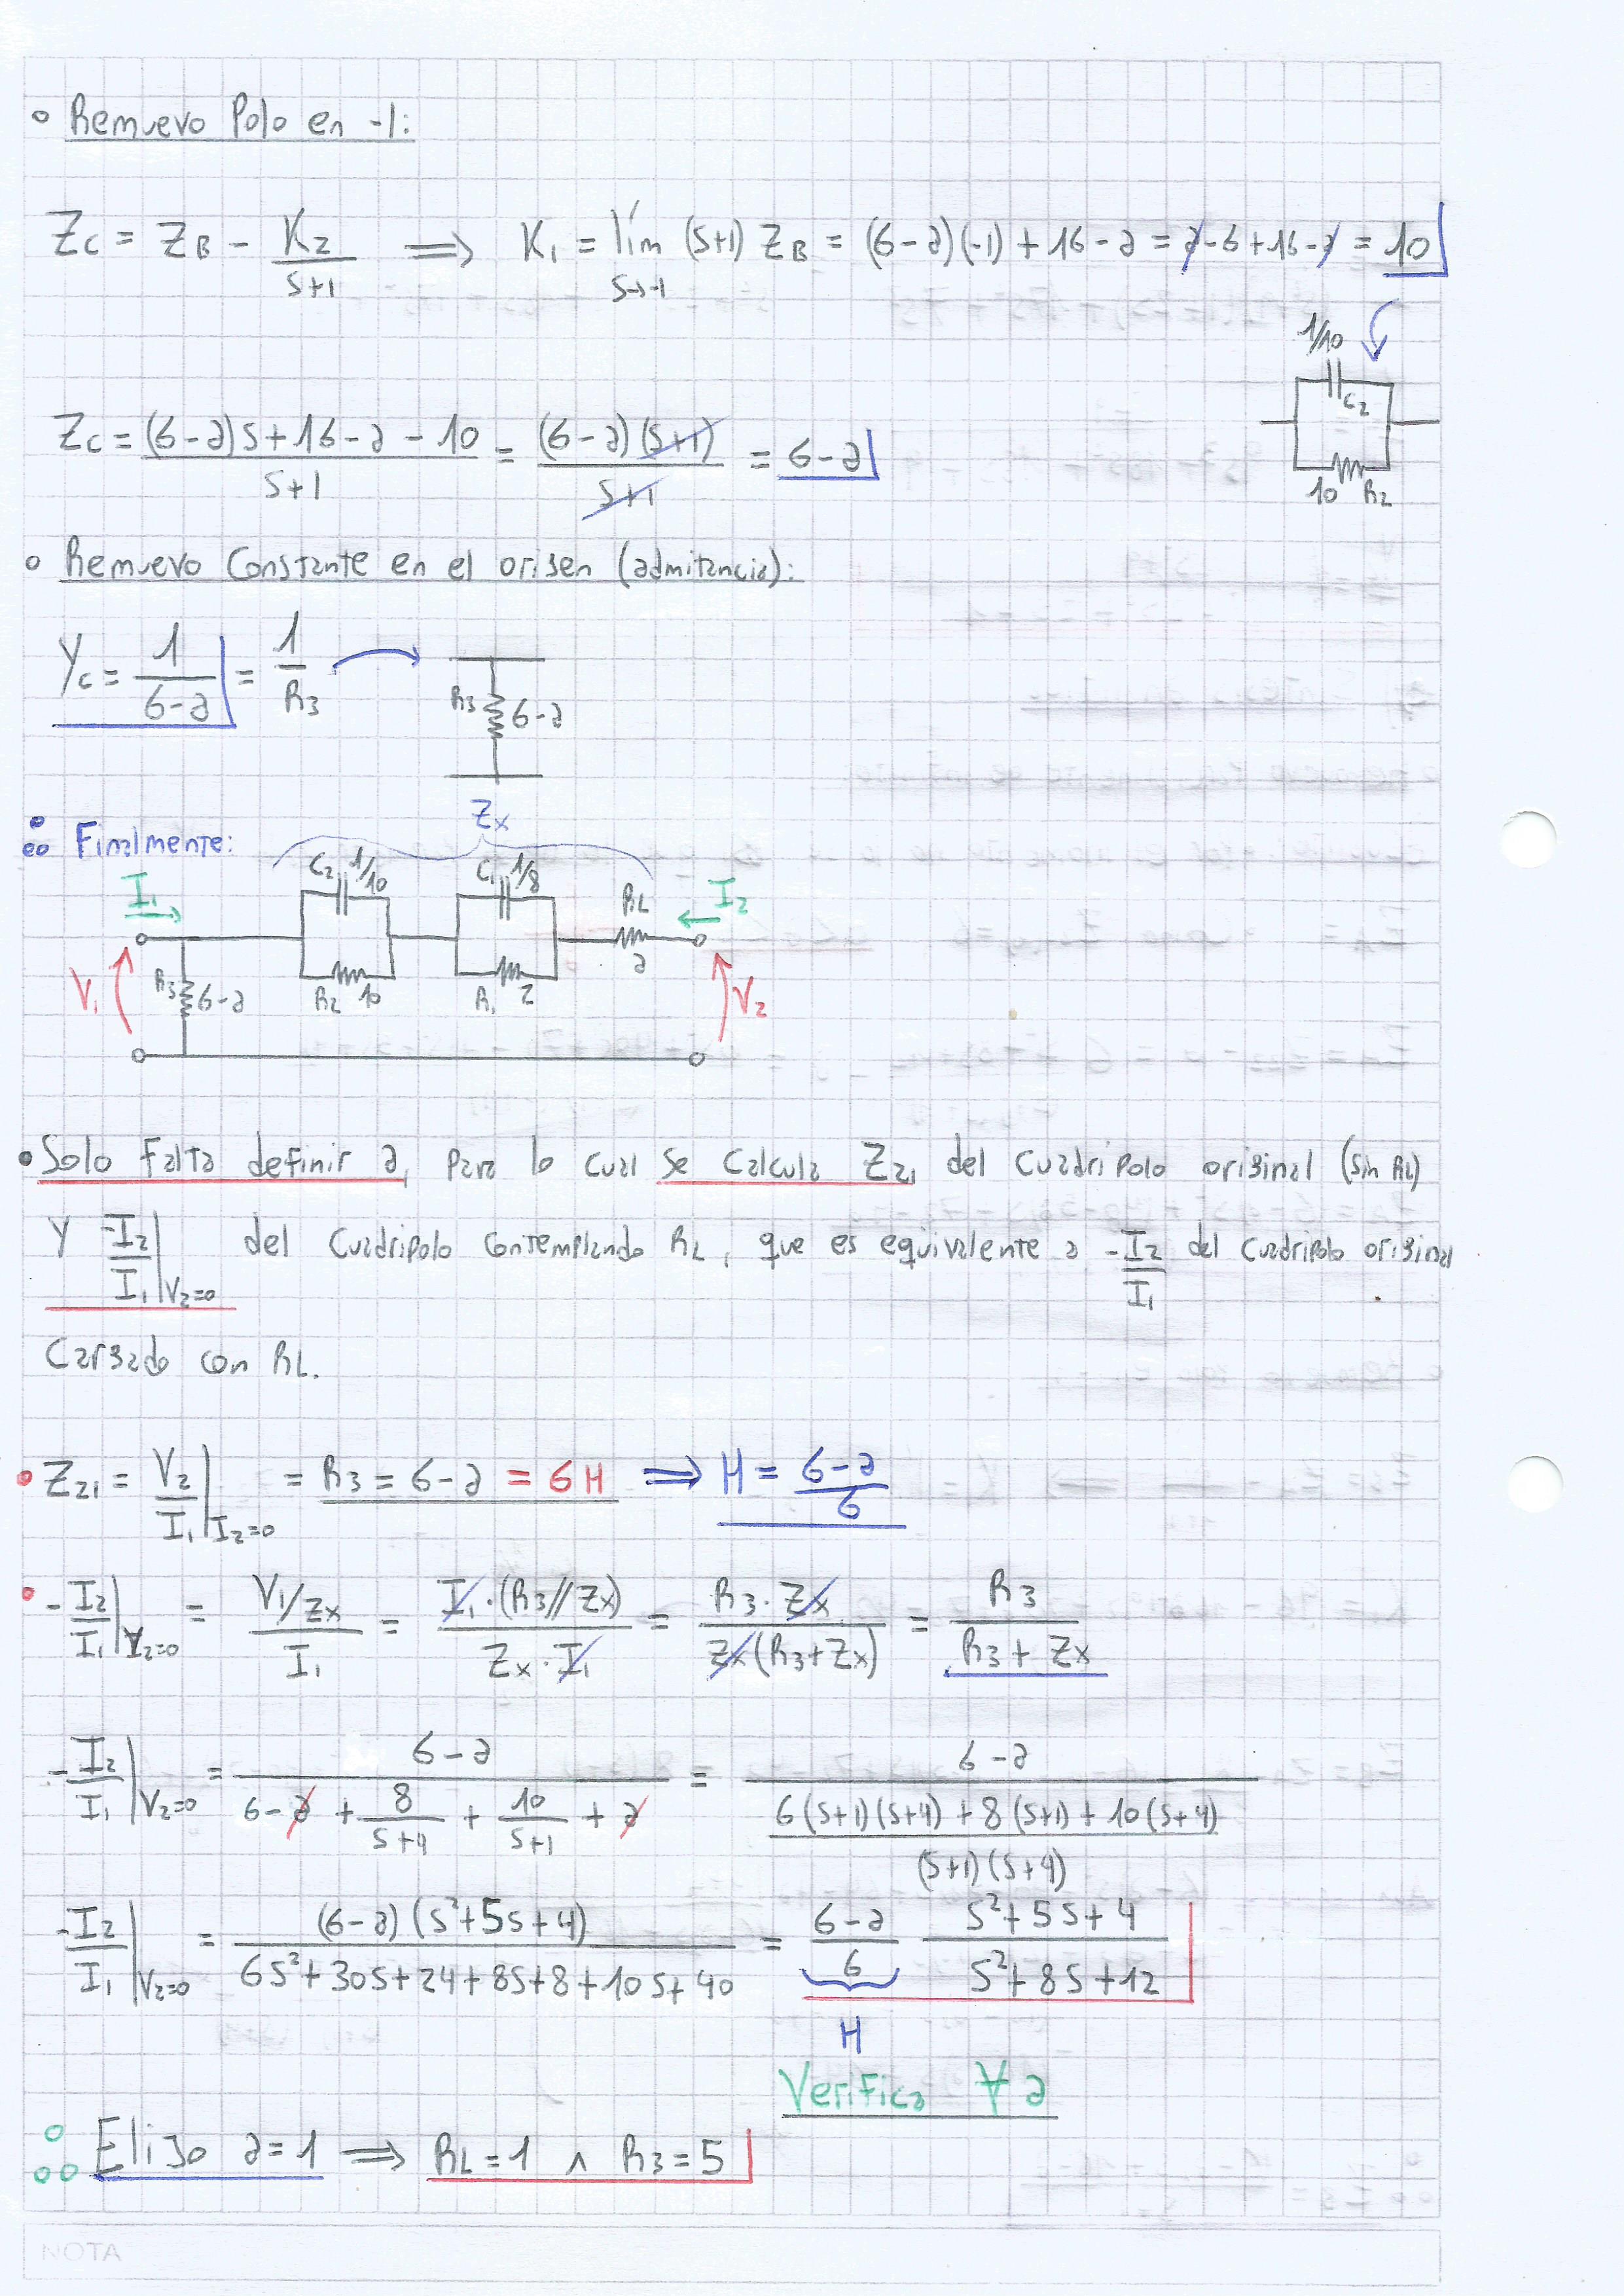 • Remuevo Polo en -1:
Zc = ZB - K2/(s+1) ⟹ K1 = lím s→-1 (s+1) ZB = (6-a)(-1) + 16-a = a-6+16-a = 10
1/10
C2
10 R2
Zc = ((6-a)s+16-a-10)/(s+1) = ((6-a)(s+1))/(s+1) = 6-a
• Remuevo Constante en el origen (admitancia):
Yc = 1/(6-a) = 1/R3
R3 6-a
∴ Finalmente:
Zx
I1 C2 1/10 C1 1/8 RL I2
V1 R3 6-a R2 10 R1 2 a V2
• Solo Falta definir a, para lo cual se Calcula Z21 del Cuadripolo original (sin RL)
Y -I2/I1|V2=0 del Cuadripolo Contemplando RL, que es equivalente a -I2/I1 del Cuadripolo original
Cargado con RL.
• Z21 = V2/I1|I2=0 = R3 = 6-a = 6H ⟹ H = (6-a)/6
• -I2/I1|V2=0 = (V1/Zx)/I1 = (I1·(R3//Zx))/(Zx·I1) = (R3·Zx)/(Zx(R3+Zx)) = R3/(R3+Zx)
-I2/I1|V2=0 = (6-a)/(6-a + 8/(s+4) + 10/(s+1) + a) = (6-a)/((6(s+1)(s+4) + 8(s+1) + 10(s+4))/((s+1)(s+4)))
-I2/I1|V2=0 = ((6-a)(s²+5s+4))/(6s²+30s+24+8s+8+10s+40) = (6-a)/6 (s²+5s+4)/(s²+8s+12)
H
Verifica ∀ a
∴ Elijo a=1 ⟹ RL=1 ∧ R3=5
NOTA